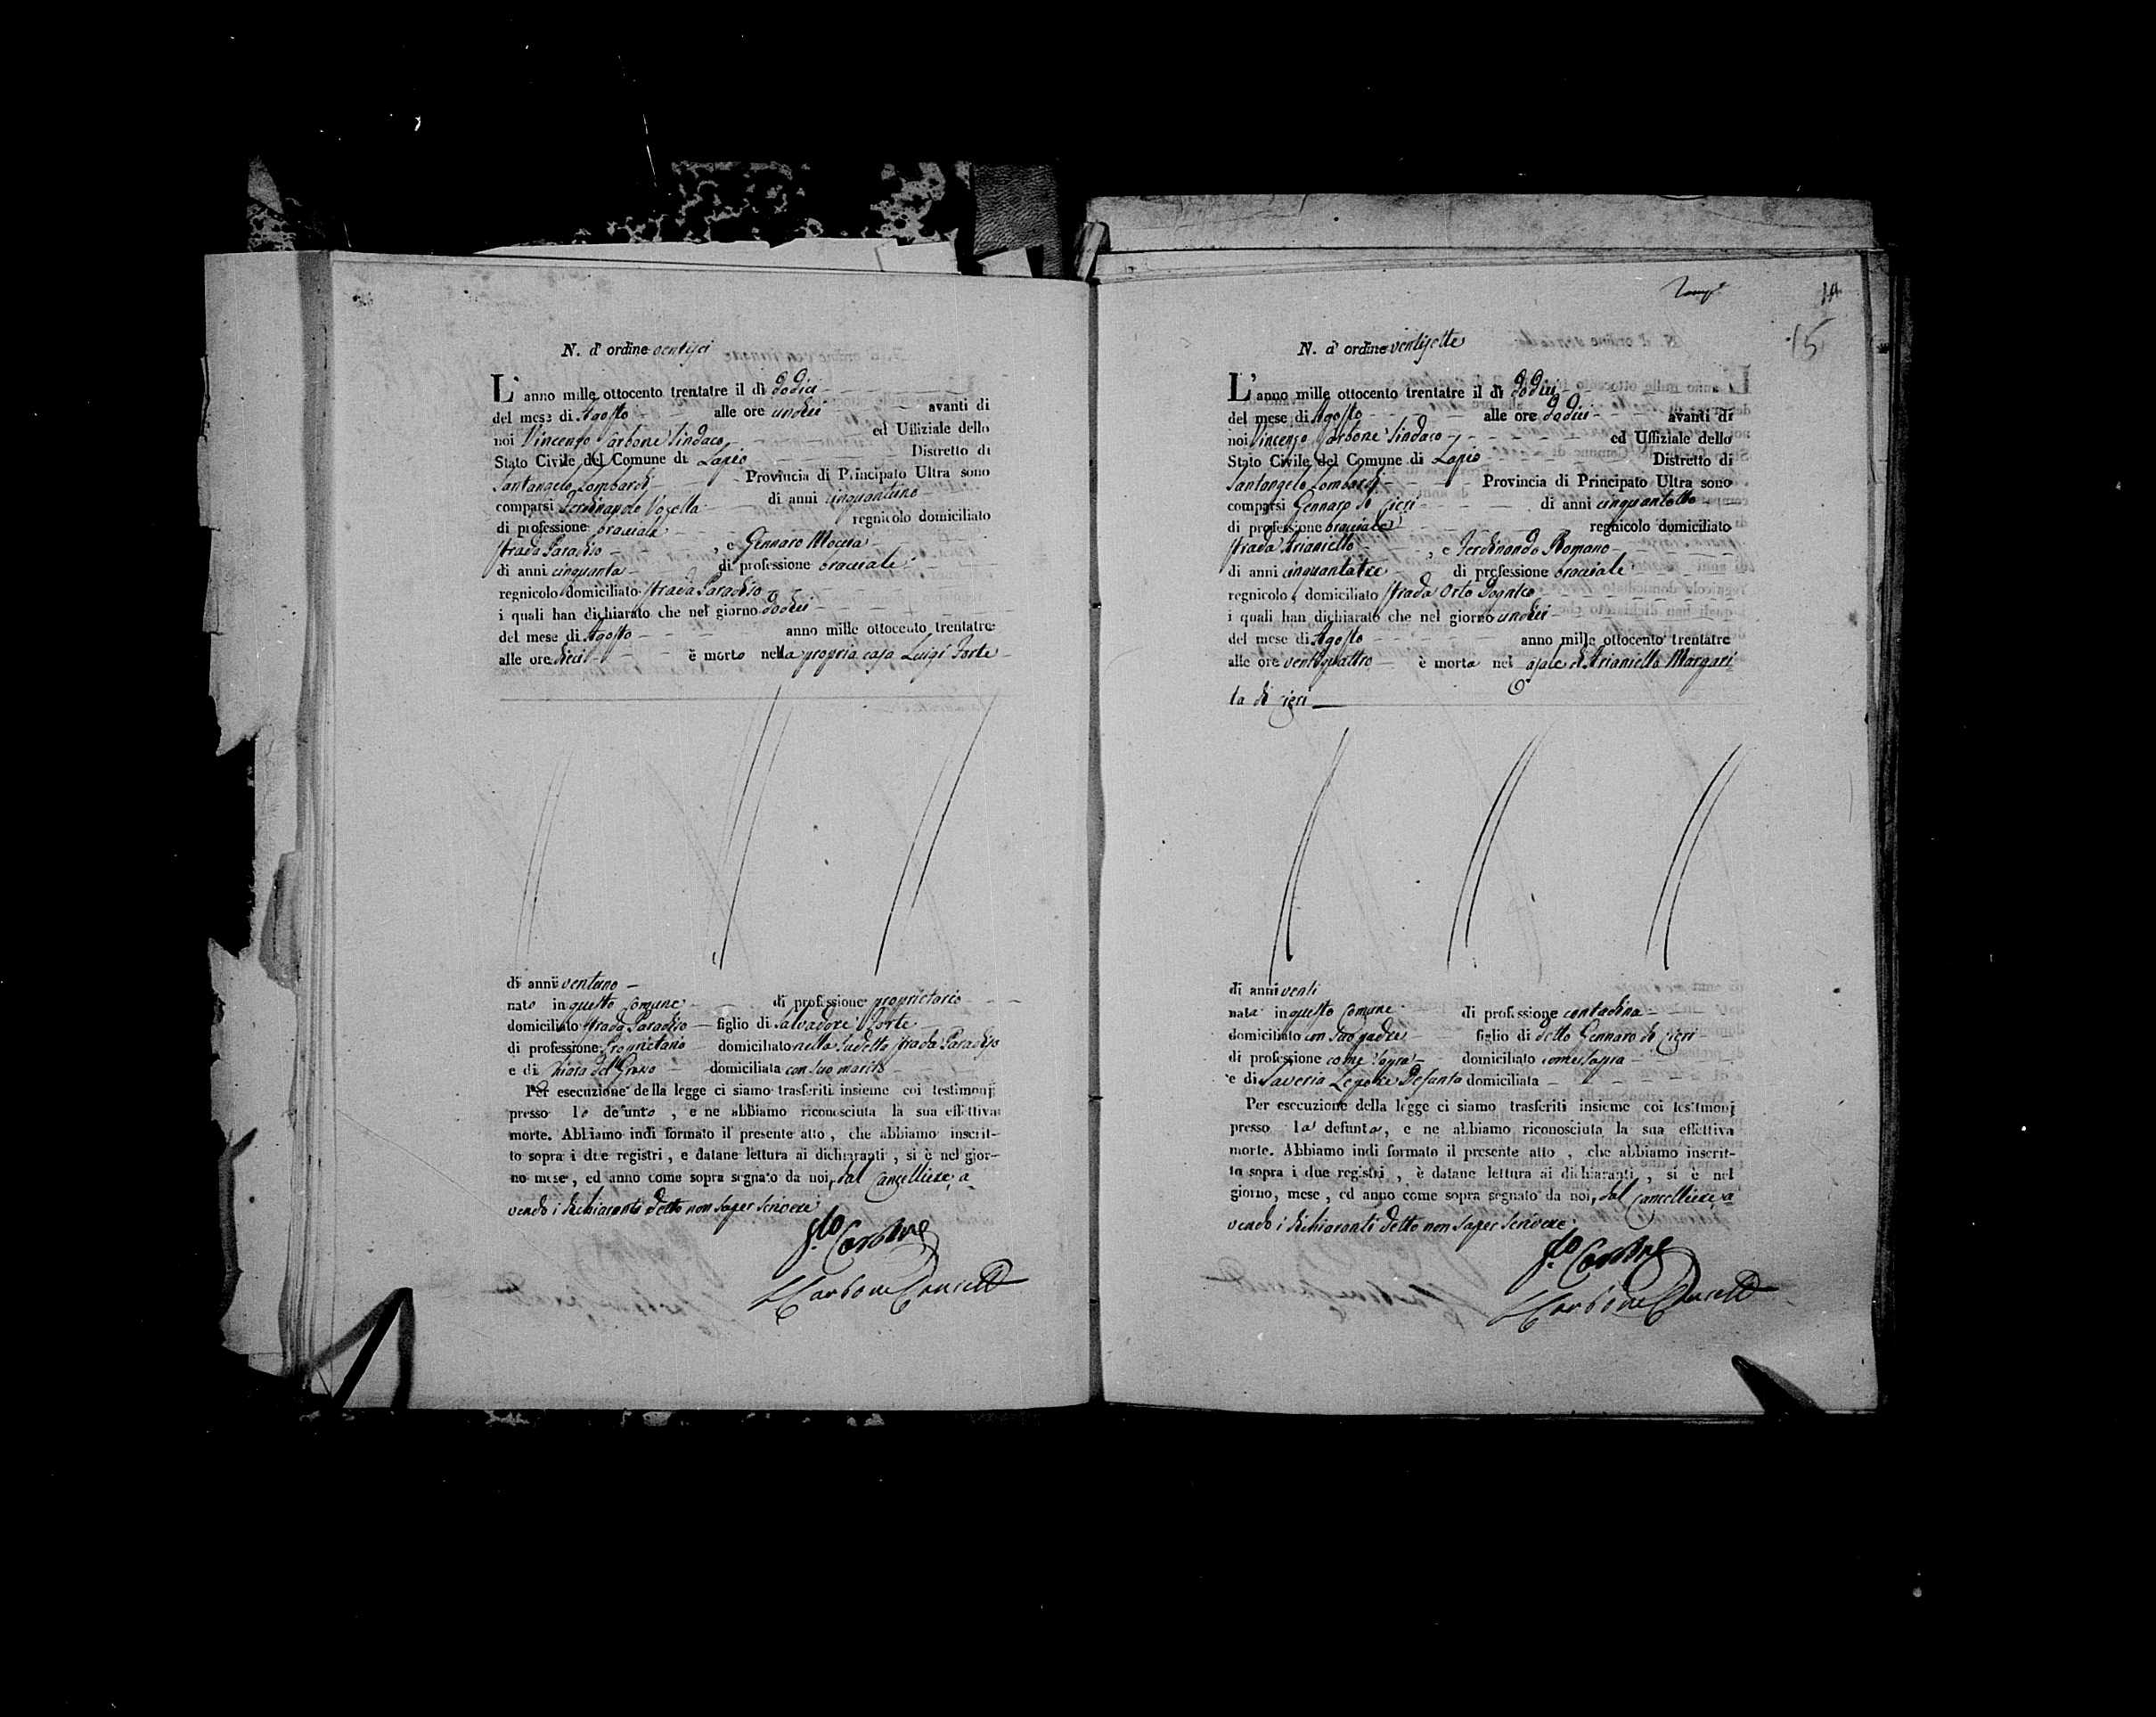 N. d' ordine ventisei
L' anno mille ottocento trentatre il dì dodici
del mese di Agosto alle ore undici avanti di
noi Vincenzo Carbone Sindaco ed Uffiziale dello
Stato Civile del Comune di Lapio Distretto di
Santangelo Lombardi Provincia di Principato Ultra sono
comparsi Ferdinando Vozella di anni cinquantuno
di professione bracciale regnicolo domiciliato
strada Paradiso , e Gennaro Moccia
di anni cinquanta di professione bracciale
regnicolo domiciliato strada Paradiso
i quali han dichiarato che nel giorno dodici
del mese di Agosto anno mille ottocento trentatre
alle ore dieci è morto nella propria casa Luigi Forte
di anni ventuno
nato in questo Comune di professione proprietario
domiciliato strada Paradiso figlio di Salvadore Forte
di professione Proprietario domiciliato nella sudetta strada Paradiso
e di Chiara del Grosso domiciliata con suo marito
Per esecuzione della legge ci siamo trasferiti insieme coi testimonj
presso lo defunto , e ne abbiamo riconosciuta la sua effettiva
morte. Abbiamo indi formato il presente atto , che abbiamo inscrit-
to sopra i due registri , e datane lettura ai dichiaranti , si è nel gior-
no mese , ed anno come sopra segnato da noi, dal Cancelliere, a-
vendo i dichiaranti detto non saper scrivere
Carbone
Carbone Cancell
14
15
N. d' ordine ventisette
L' anno mille ottocento trentatre il dì dodici
del mese di Agosto alle ore dodici avanti di
noi Vincenzo Carbone Sindaco ed Uffiziale dello
Stato Civile del Comune di Lapio Distretto di
Santangelo Lombardi Provincia di Principato Ultra sono
comparsi Gennaro di Cieri di anni cinquantotto
di professione bracciale regnicolo domiciliato
strada Arianiello , e Ferdinando Romano
di anni cinquantatre di professione bracciale
regnicolo , domiciliato strada Orto
i quali han dichiarato che nel giorno undici
del mese di Agosto anno mille ottocento trentatre
alle ore ventiquattro è morta nel casale di Arianiello Margari
ta di Cieri
di anni venti
nata in questo Comune di professione contadina
domiciliato con suo padre figlio di detto Gennaro di Cieri
di professione come sopra domiciliato come sopra
e di Saveria Lepore defunta domiciliata
Per esecuzione della legge ci siamo trasferiti insieme coi testimonj
presso la defunta, e ne abbiamo riconosciuta la sua effettiva
morte. Abbiamo indi formato il presente atto , che abbiamo inscrit-
to sopra i due registri , è datane lettura ai dichiaranti , si è nel
giorno, mese , ed anno come sopra segnato da noi, dal Cancelliere, a-
vendo i dichiaranti detto non saper scrivere.
Carbone
Carbone Cancell